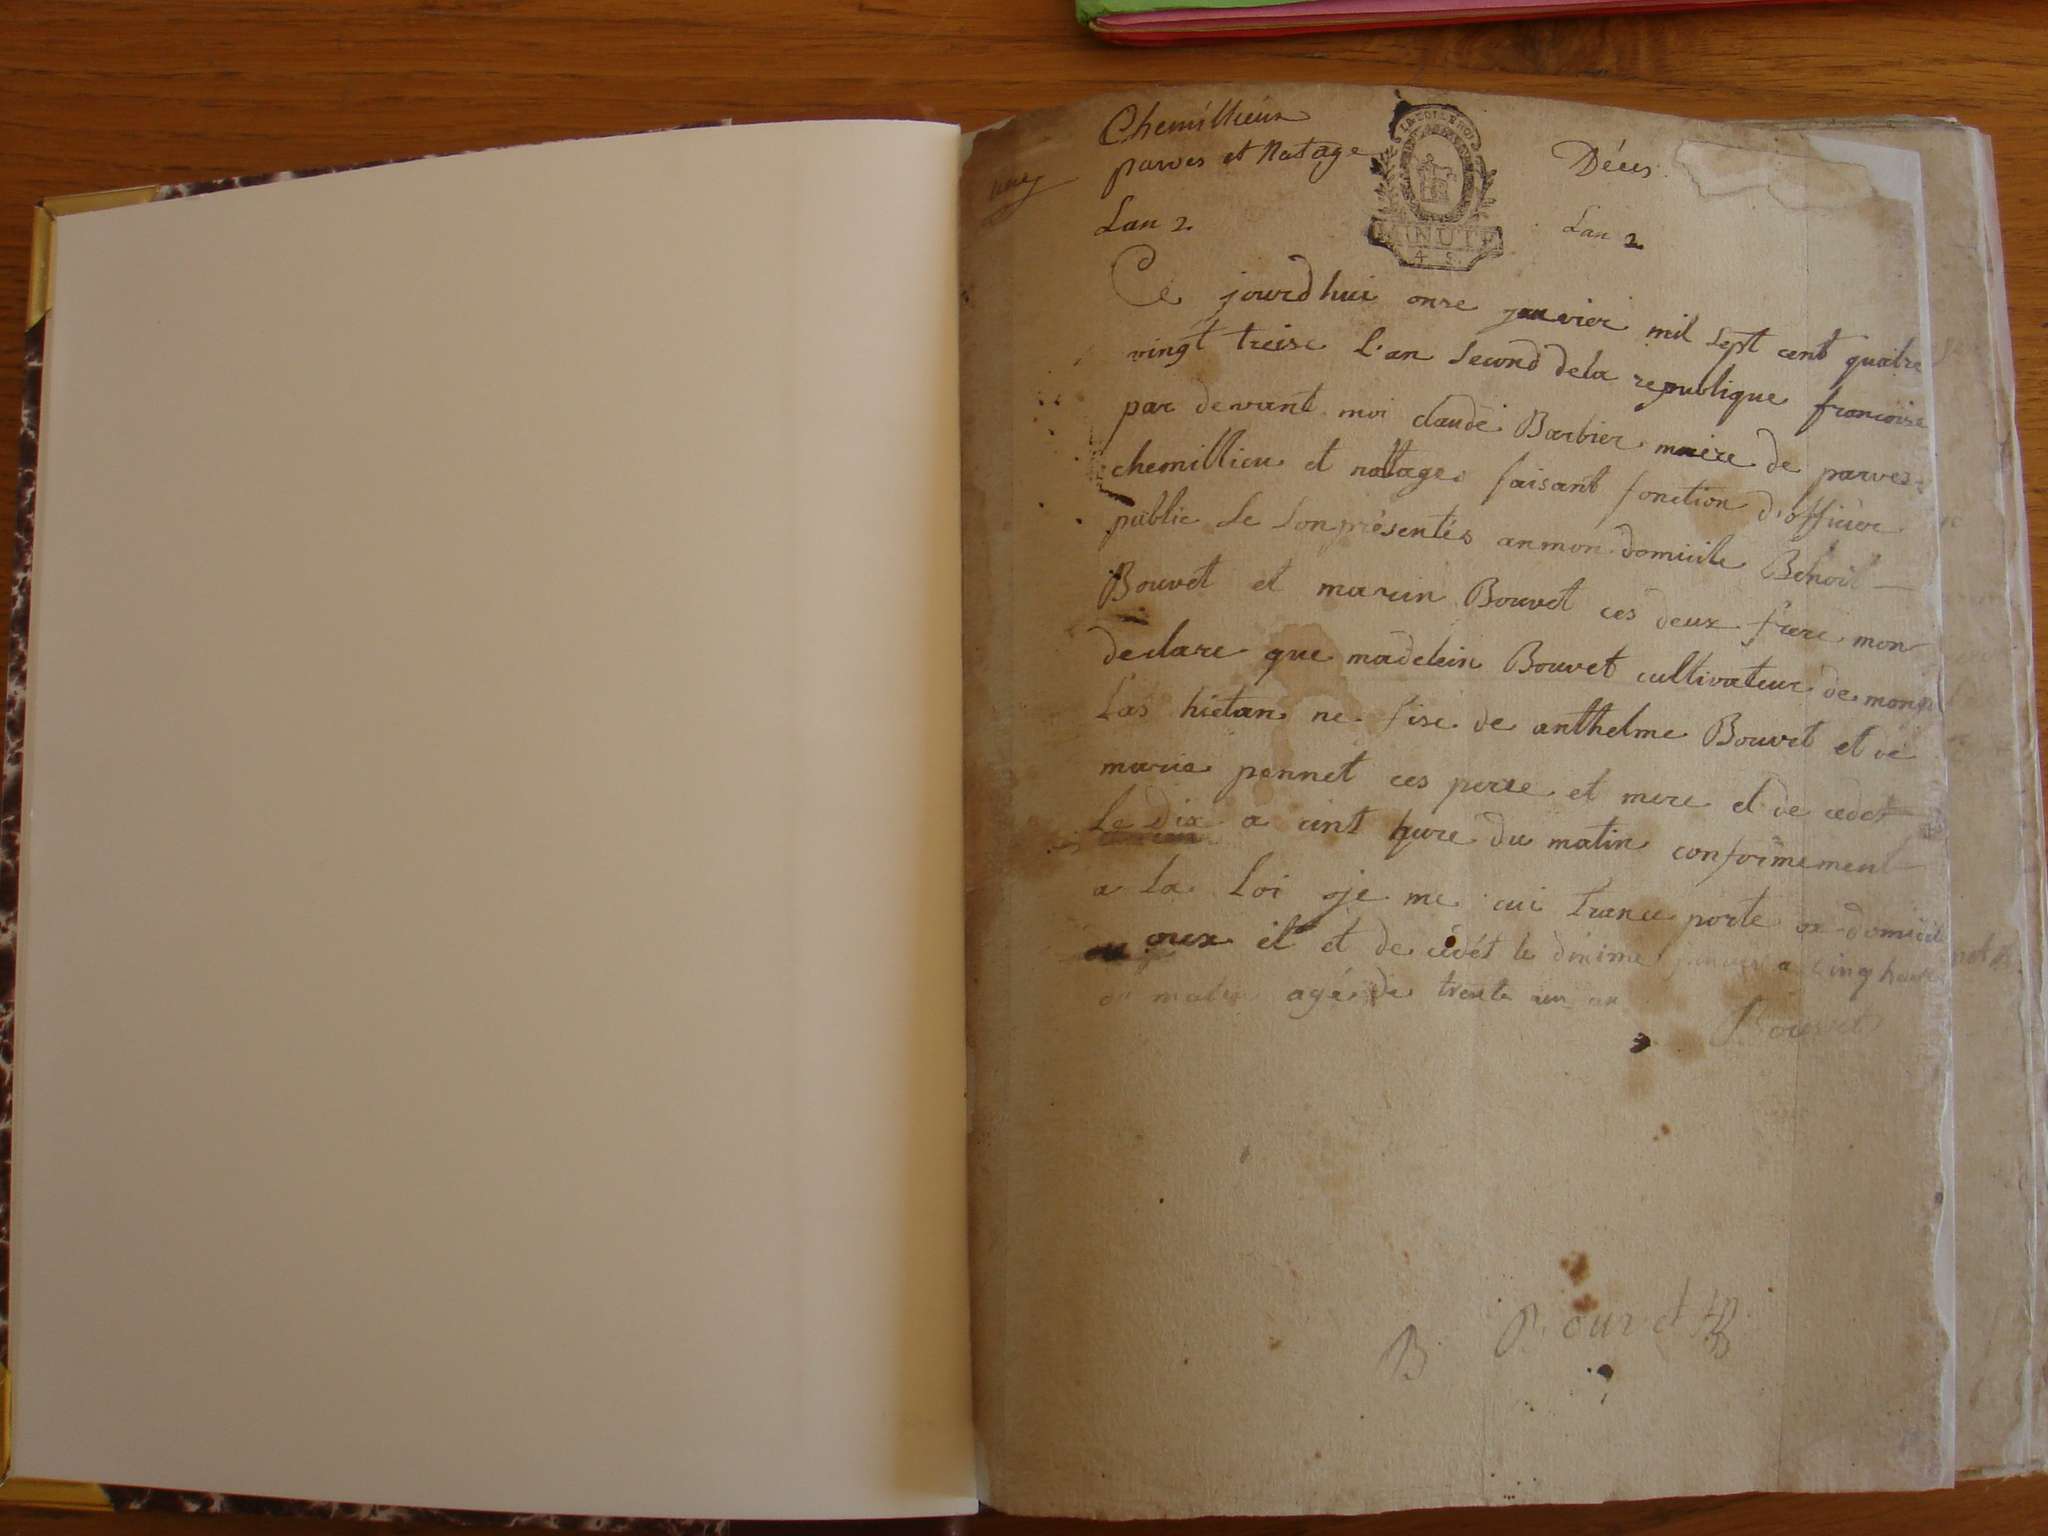 Chemillieux
parves et Natage
Décès
Lan 2.
Lan 2
LA LOI LE ROI
MINUTE
4 S
Ce jourdhui onse janvier mil sept cent quatre
vingt treise l'an second dela republique francoise
par devant moi claude Barbier maire de parves
chemillieu et nattage faisant fonction d'officier
public se sonprésentés anmon domicile Benoit
Bouvet et marin Bouvet ces deux frere mon
declare que madelein Bouvet cultivateur de
ne fise de anthelme Bouvet et de
maria pennet ces perre et mere et de cedet
le dix a cint hure du matin conformement
a la loi je me cui trance porte domicil
il et de cédét le dixime janvier a cinq heure
matin agé de trente un an
Bouvet
B Bouvet